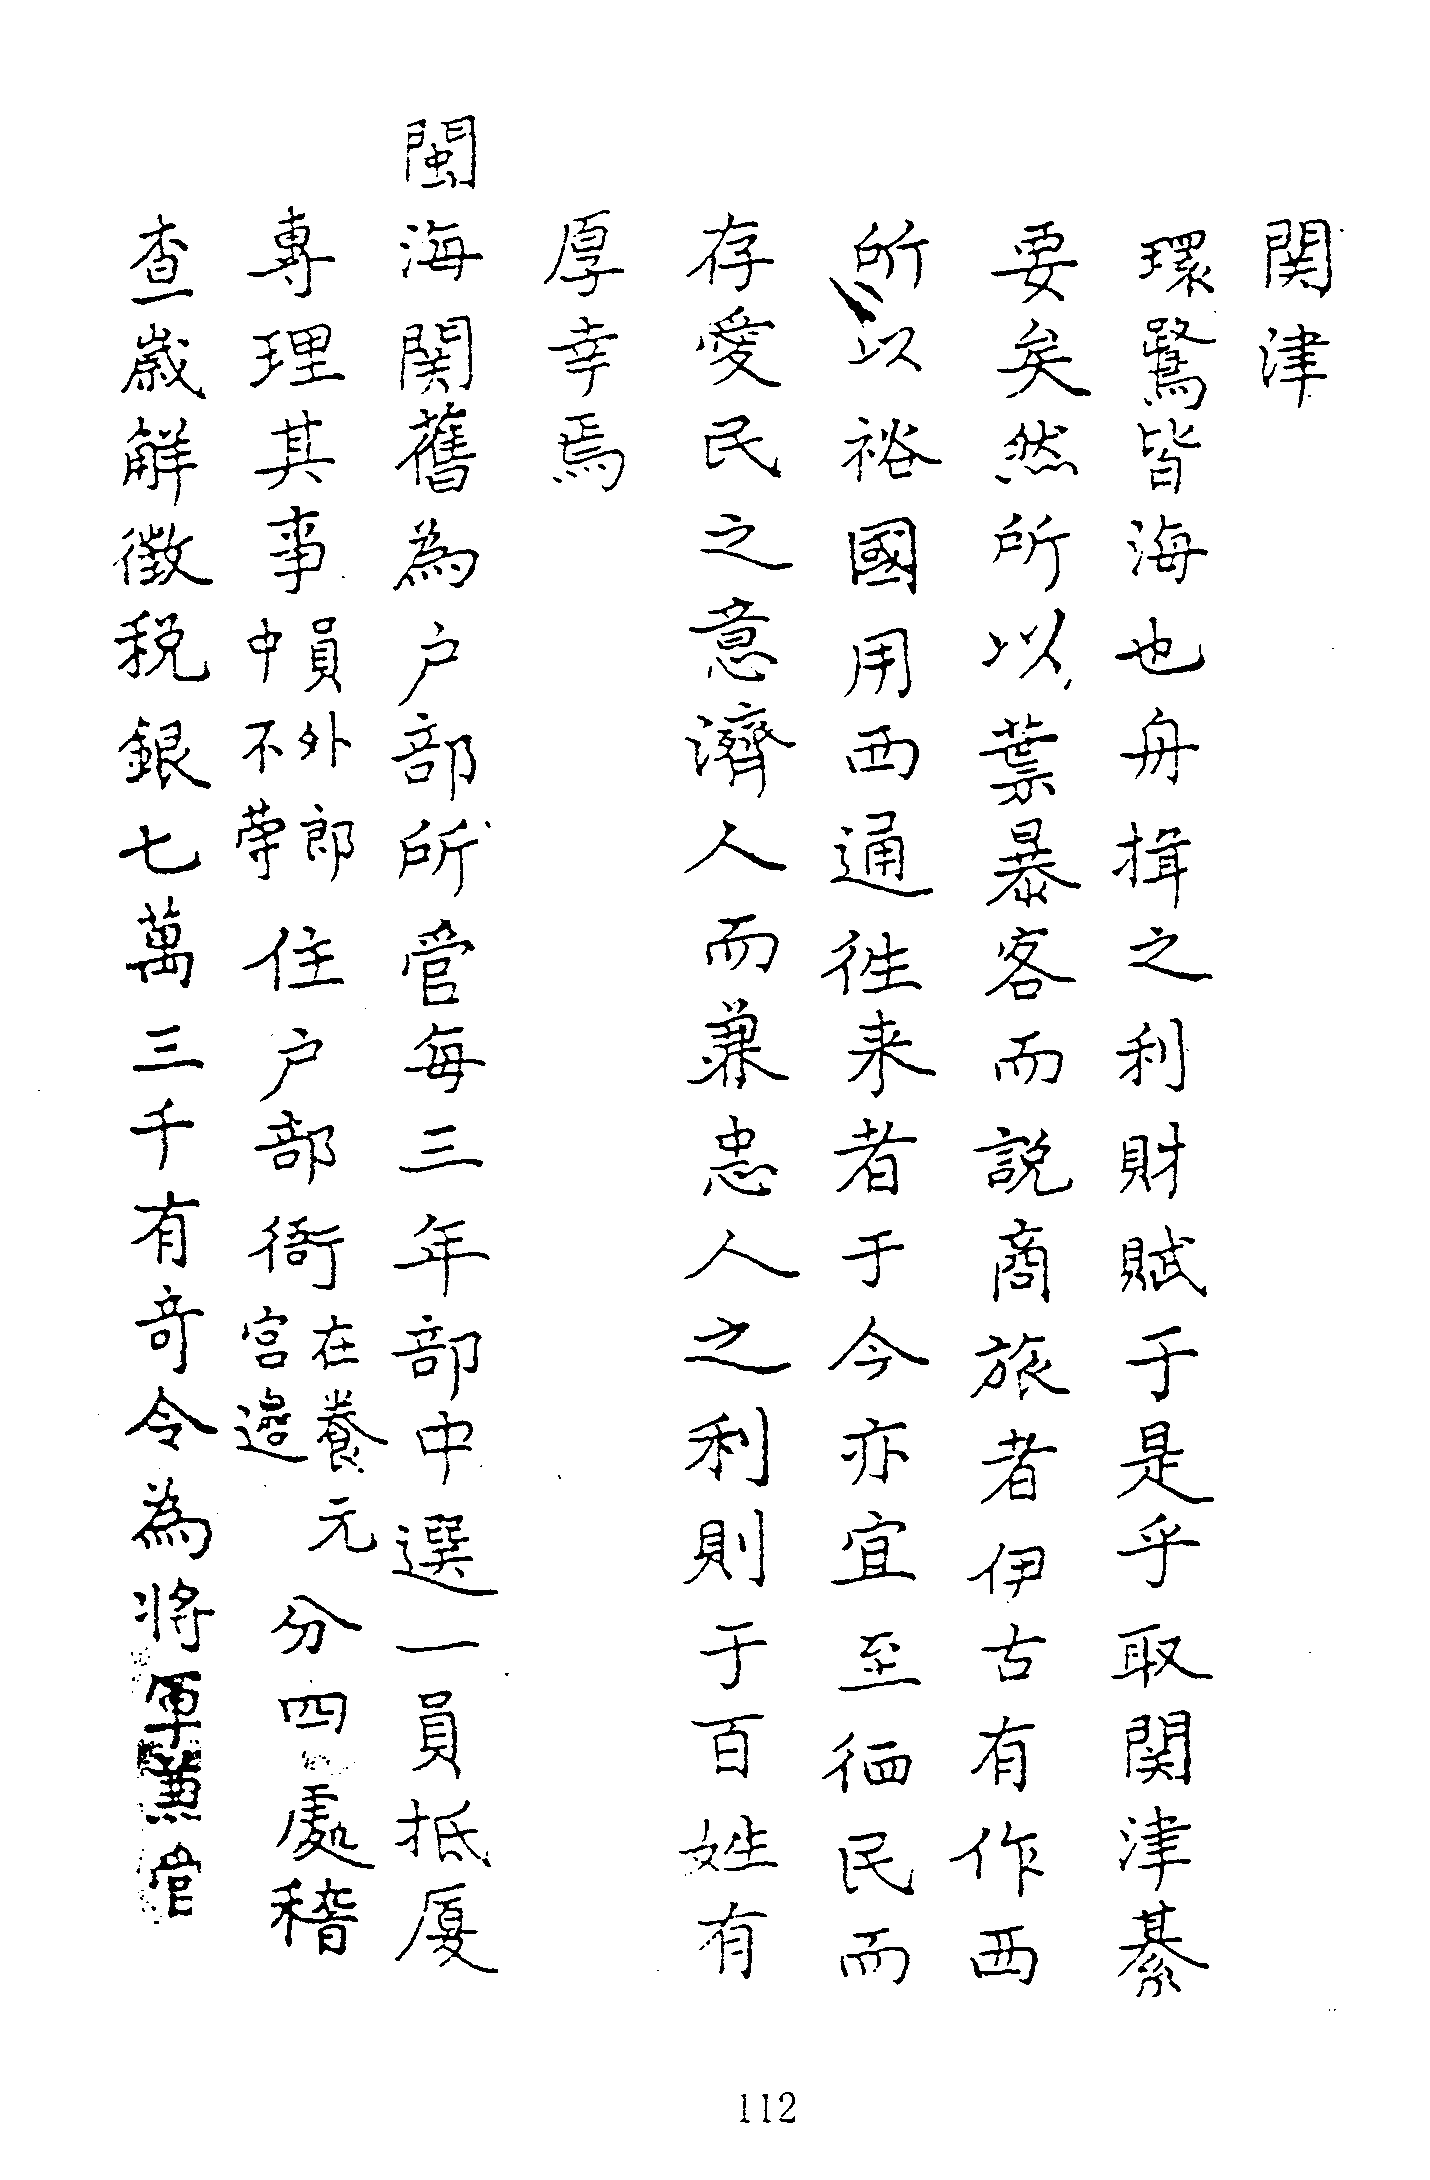 関津
環鷺皆海也舟揖之利財賦于是乎取関津綦
要矣然所以葉暴客而説商旅者伊古有作西
所以裕國用西通徃来者于今亦宜至徆民而
存愛民之意濟人而兼忠人之利則于百姓有
厚幸焉
閩海関舊為户部所管每三年部中選一員抵厦
專理其事員外郎中不䓁住户部衙在養元宮邉分四處稽
查一歲觧徵税銀七萬三千有竒令為将軍兼管
112